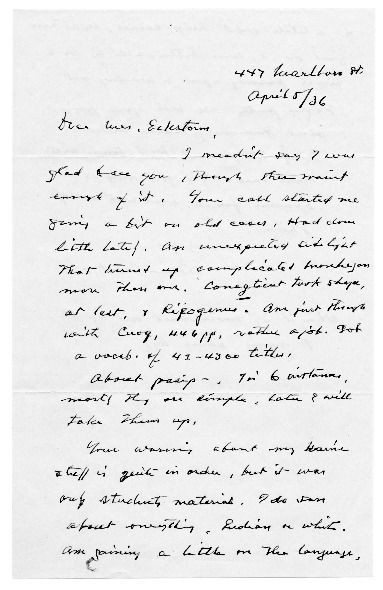 447 Marlboro St.
April 5/36
Dear Mrs. Eckstorm,
I needn't say I was
glad to see you, though there wasn't
enough of it. Your call started me
going a bit on old cases. Had done
little lately. An unexpected sidelight
that turned up complicated Monhegan
more than one. Conecticut took shape,
at last, & Ripogenus. Am just through
with Cuoq, 446 pp, rather a job. Got
a vocab. of 42-4300 titles.
About pasip-, I'n 6 instances,
mostly they are simple, later I will
take them up.
Your warning about my Maine
stuff is quite in order, but it was
only students material. I do
about everything, Indian or white.
Am gaining a little on the language,